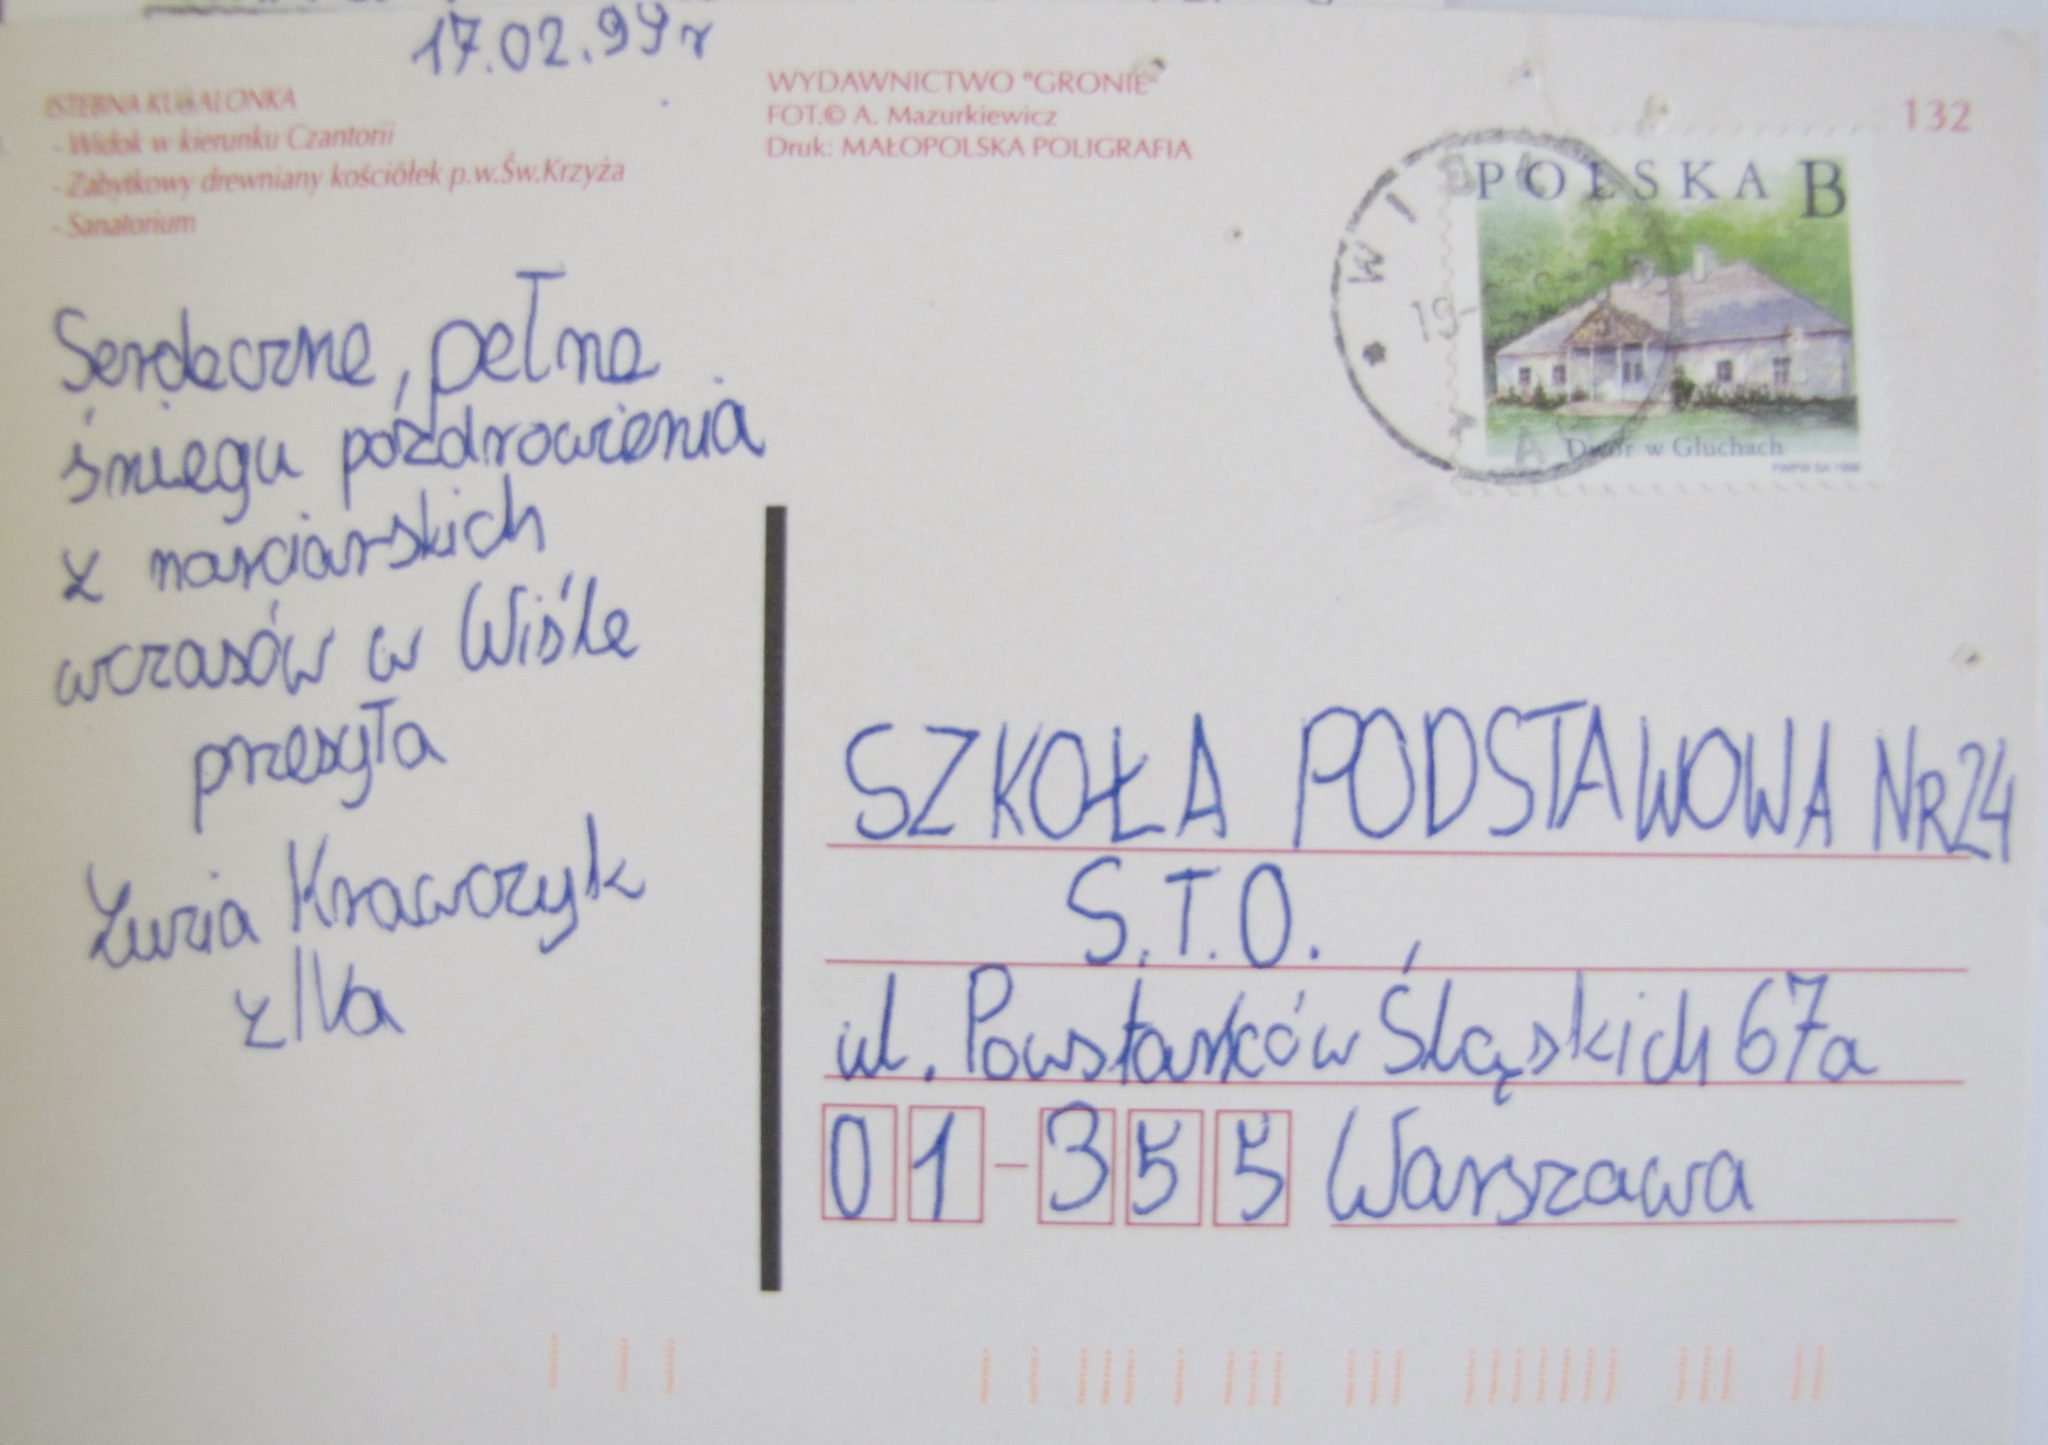 17.02.99r
ISTEBNA KUBALONKA
- Widok w kierunku Czantorii
- Zabytkowy drewniany kościółek p.w.Św.Krzyża
- Sanatorium
WYDAWNICTWO "GRONIE"
FOT.© A. Mazurkiewicz
Druk: MAŁOPOLSKA POLIGRAFIA
132
POLSKA B
Dwór w Głuchach
PWPW SA 1998
WISŁA
19-
Serdeczne, pełne
śniegu pozdrowienia
z narciarskich
wczasów w Wiśle
przesyła
Zuzia Krawczyk
z IVa
SZKOŁA PODSTAWOWA NR 24
S.T.O.
ul. Powstańców Śląskich 67a
01-355 Warszawa